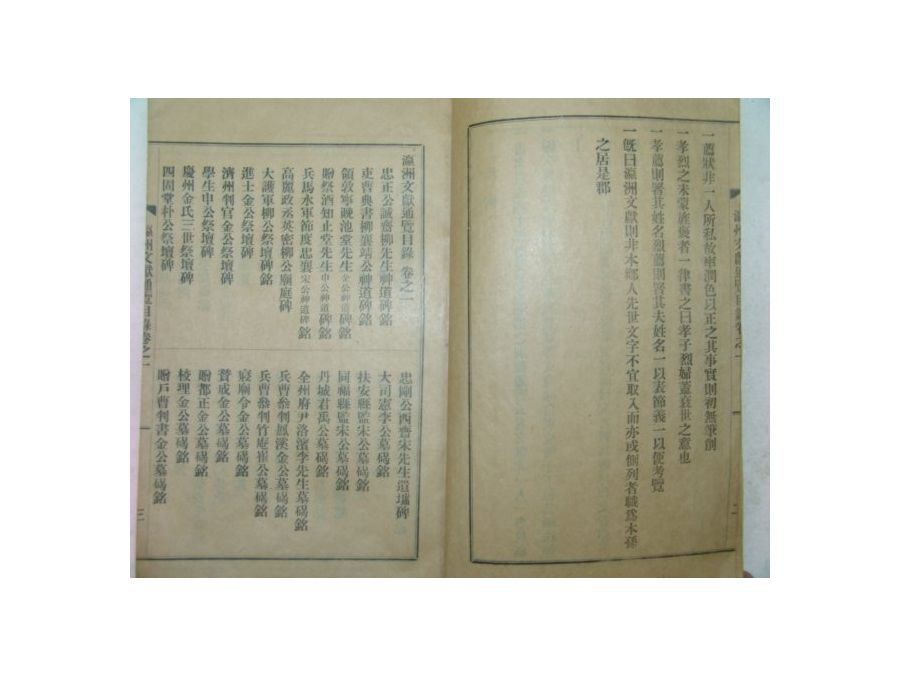 一薦狀非一人所私故率潤色以正之其事實則初無筆削
一孝烈之未蒙旌褒者一律書之曰孝子烈婦蓋衰世之意也
一孝薦則署其姓名烈薦則署其夫姓名一以表節義一以便考覽
一旣曰瀛洲文獻則非本鄕人先世文字不宜取入而亦或側列者職爲本孫
之居是郡
瀛洲文獻通覽目錄 卷之一
忠正公誠齋柳先生神道碑銘
吏曹典書柳襄靖公神道碑銘
領敦寧晩池堂先生 公神道碑銘
贈祭酒知止堂先生申公神道碑銘
兵馬水軍節度忠襄宋公神道碑銘
高麗政丞英密柳公廟庭碑
大護軍柳公祭壇碑銘
進士金公祭壇碑
濟州判官金公祭壇碑
學生申公祭壇碑
慶州金氏三世祭壇碑
四固堂朴公祭壇碑
忠剛公西齋宋先生遺墟碑
大司憲李公墓碣銘
扶安縣監宋公墓碣銘
同福縣監宋公墓碣銘
丹城君禹公墓碣銘
全州府尹洛濱李先生墓碣銘
兵曹叅判鳳溪金公墓碣銘
兵曹叅判竹庵崔公墓碣銘
寢廟令金公墓碣銘
贊成金公墓碣銘
贈都正金公墓碣銘
稜理金公墓碣銘
贈戶曹判書金公墓碣銘
瀛州文獻通覽目錄卷之一
三
二